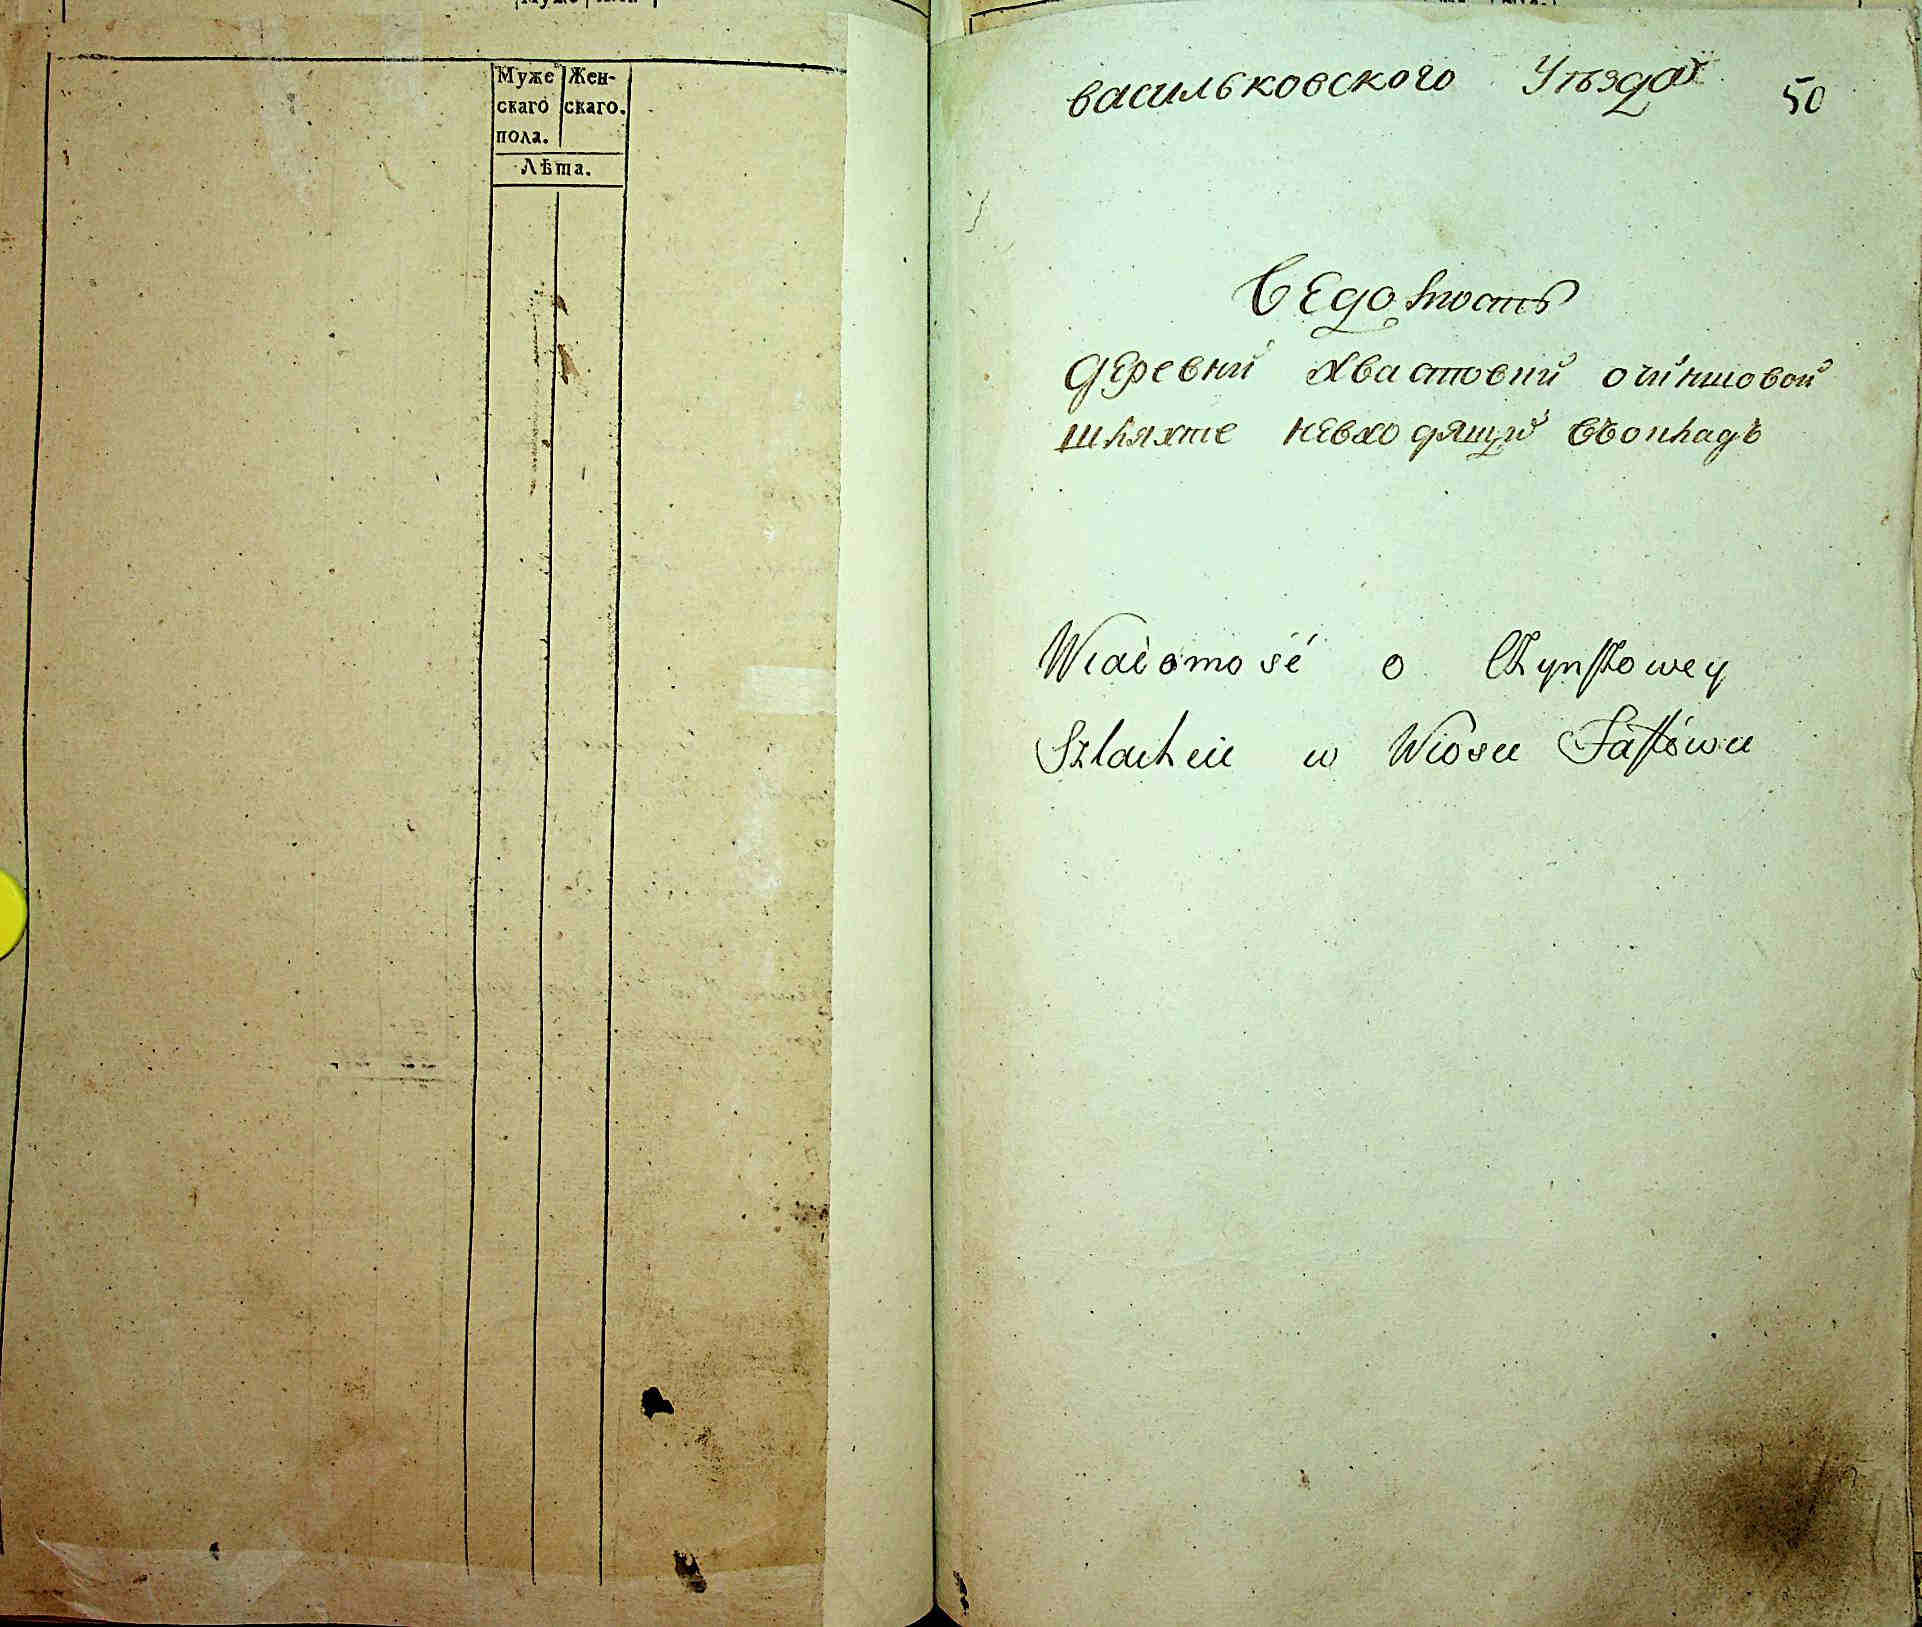 Муже Жен-
скаго скаго.
пола.
Лѣта.
васильковского Уѣзда 50
Ведомость
деревни Хвастовки очиншовой
шляхте невходящий въокладъ
Wiadomość o Czynszowey
Szlachcie w Wiosce Fastówce